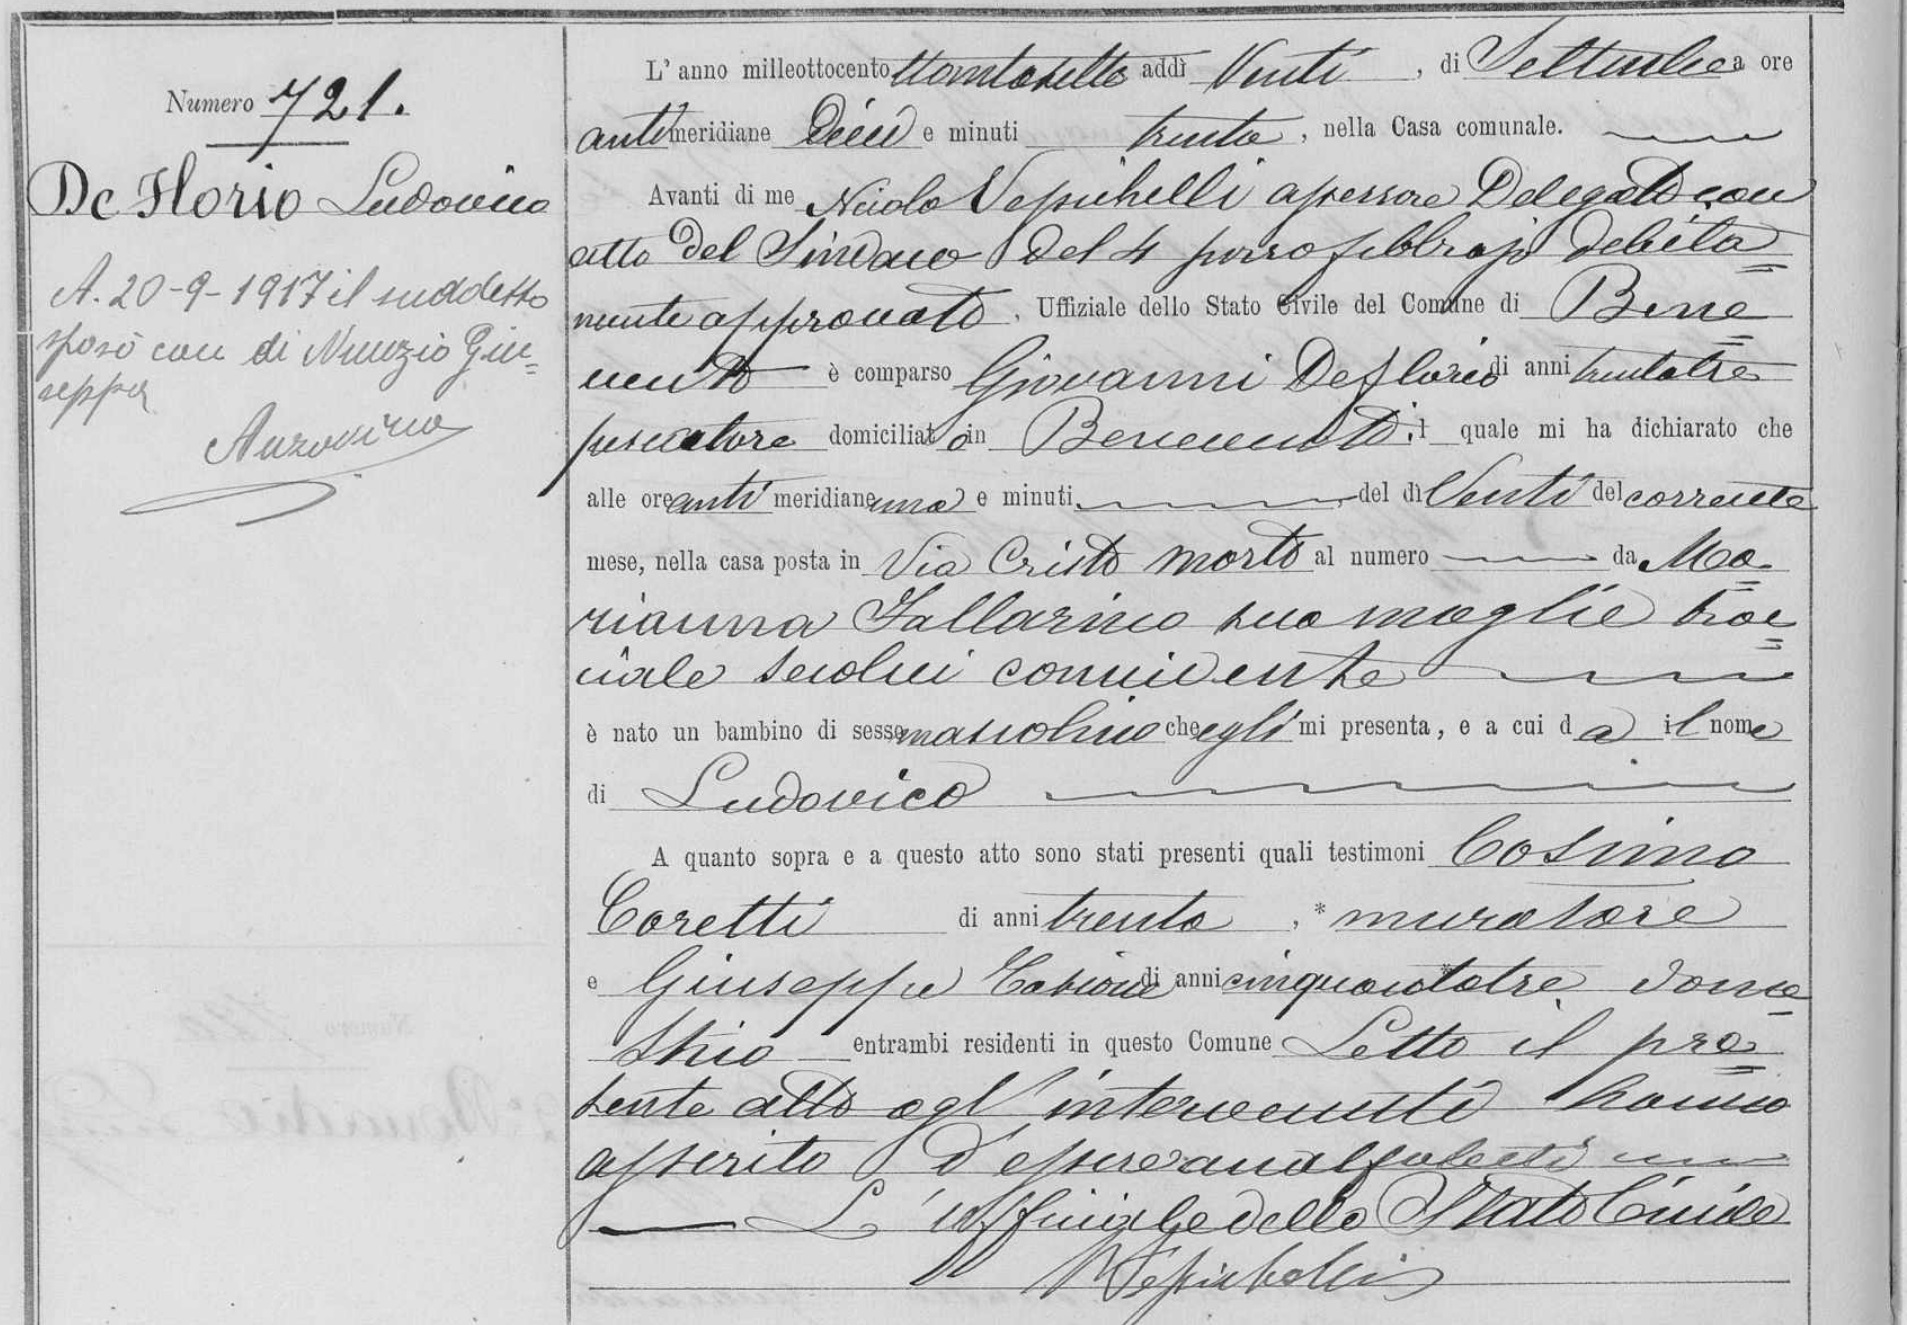 Numero 721.
De Florio Ludovico
A. 20-9-1917 il suddetto
sposò con di Nunzio Giu=
seppa
L'anno milleottocento addì Venti, di Settembre a ore
antimeridiane Dieci e minuti trenta, nella Casa comunale.
Avanti di me Nicola Vessichelli assessore Delegato con
atto del Sindaco del 4 febbrajo debita=
mente approvato, Uffiziale dello Stato Civile del Comune di Bene=
vento è comparso Giovanni De Florio di anni trentatre
pescatore domiciliato in Benevento il quale mi ha dichiarato che
alle ore anti meridiane una e minuti del dì Venti del corrente
mese, nella casa posta in Via Cristo morto al numero da Ma=
rianna Fallarino sua moglie
seco lui convivente
è nato un bambino di sesso mascolino che egli mi presenta, e a cui da il nome
di Ludovico
A quanto sopra e a questo atto sono stati presenti quali testimoni Cosimo
Coretti di anni trenta, * muratore
e Giuseppe di anni cinquantatre dome=
stico entrambi residenti in questo Comune Letto il pre=
sente atto agl'intervenuti hanno
asserito d'essere analfabeti
L'uffiziale dello Stato Civile
N Vessichelli